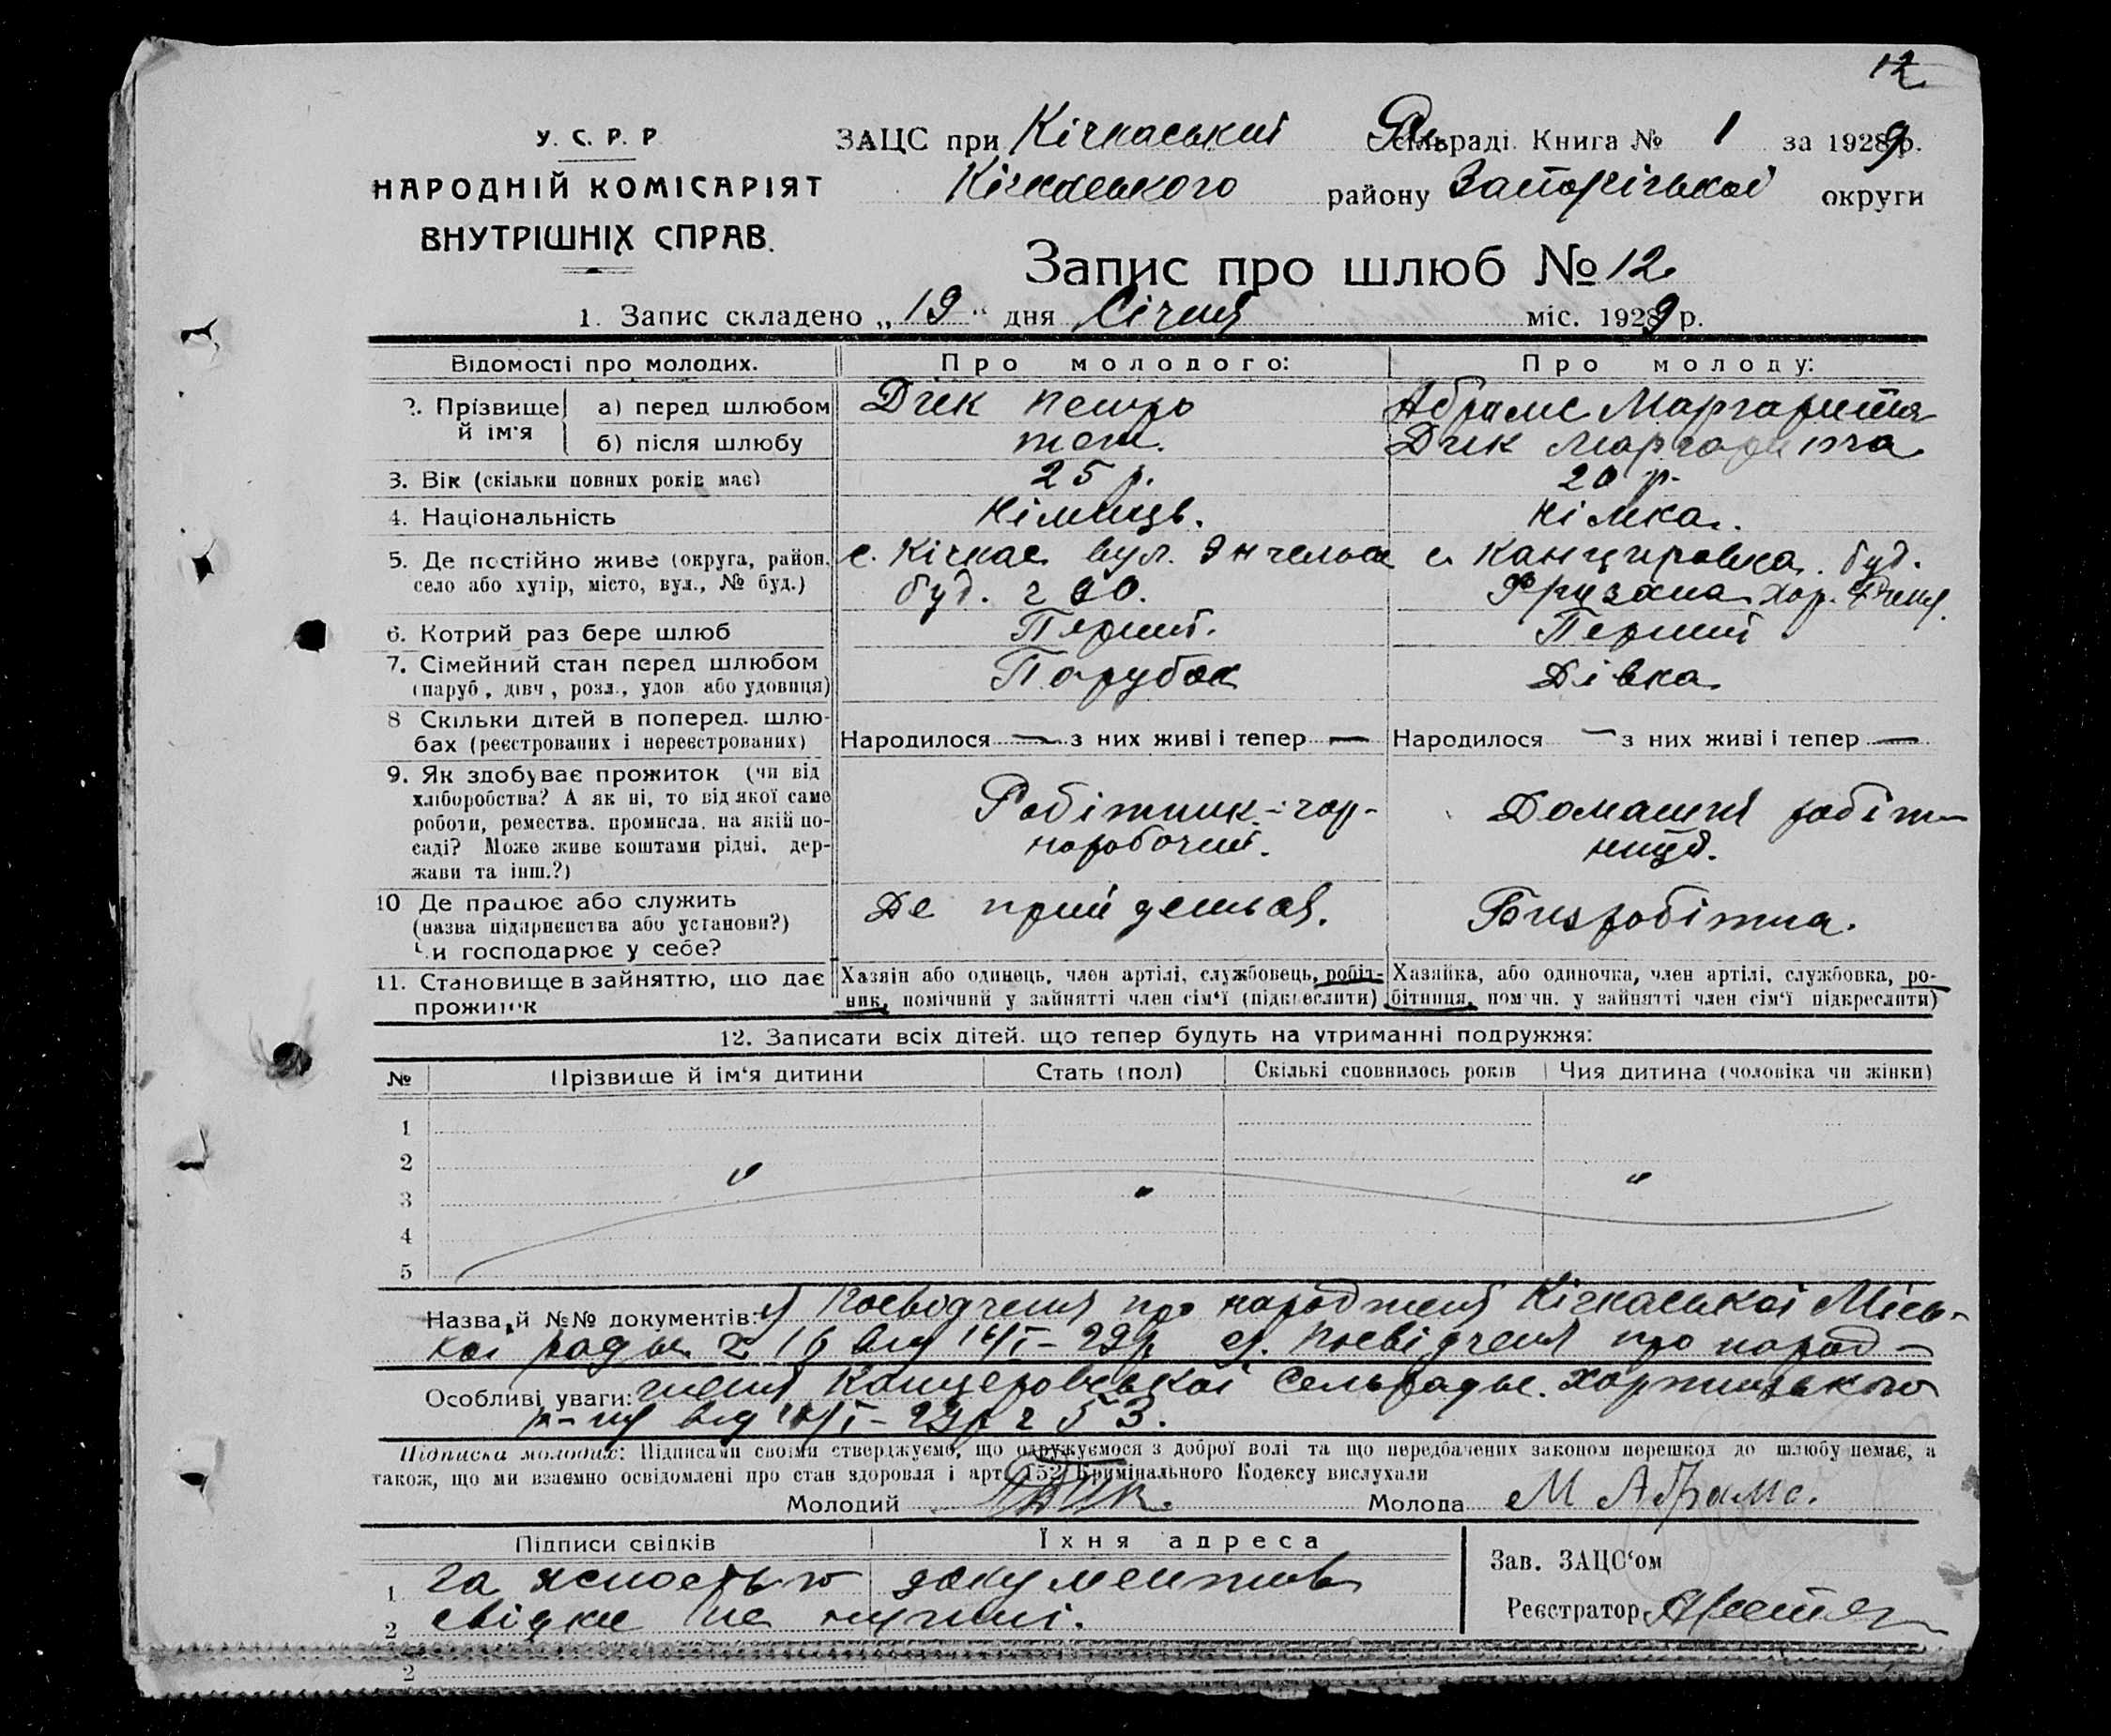 12
У. С. Р. Р
НАРОДНІЙ КОМІСАРІЯТ
ВНУТРІШНІХ СПРАВ.
ЗАЦС при Кічкаській сільраді. Книга № 1 за 1929 р.
Кічкаського району Запоріської округи
Запис про шлюб № 12
1. Запис складено „19“ дня Січня міс. 1929 р.
Відомості про молодих. Про молодого: Про молоду:
2. Прізвище й ім'я а) перед шлюбом Дік Петро Абрамс Маргарита
б) після шлюбу теж. Дик Маргарита
3. Вік (скільки повних років має) 25 р. 20 р.
4. Національність Німець. Німка.
5. Де постійно живе (округа, район, с. Кічкас вул. Энгельса с. Канцировка. буд.
село або хутір, місто, вул., № буд.) буд. Фризана Хор.
6. Котрий раз бере шлюб Перший. Перший
7. Сімейний стан перед шлюбом Парубок Дівка
(паруб., дівч., розл., удов. або удовиця)
8 Скільки дітей в поперед. шлю-
бах (реєстрованих і нереєстрованих) Народилося — з них живі і тепер — Народилося — з них живі і тепер —
9. Як здобуває прожиток (чи від
хліборобства? А як ні, то від якої саме Робітник - чор- Домашня робіт-
роботи, ремества. промисла. на якій по-
саді? Може живе коштами рідні. дер- норобочий. ниця.
жави та інш.?)
10 Де працює або служить Де прийдеться. Бизробітна.
(назва підприємства або установи?)
Чи господарює у себе?
11. Становище в зайняттю, що дає Хазяїн або одинець, член артілі, службовець, робіт- Хазяйка, або одиночка, член артілі, службовка, ро-
прожиток ник, помічний у зайнятті член сім'ї (підкреслити) бітниця, помічн. у зайнятті член сім'ї підкреслити)
12. Записати всіх дітей. що тепер будуть на утриманні подружжя:
№ Прізвище й ім'я дитини Стать (пол) Скількі сповнилось років Чия дитина (чоловіка чи жінки)
1
2
3
4
5
Назва й №№ документів: Посвідчення про народження Кічкаської Місь-
кої ради від 29р Посвідчення про народ-
Особливі уваги: ження Канцеровської Сельради. Хортицького
р-ну від 53.
Підписи молодих: Підписами своїми стверджуємо, що одружуємося з доброї волі та що передбачених законом перешкод до шлюбу немає, а
також, що ми взаємно освідомлені про стан здоровля і арт. 152 Кримінального Кодексу вислухали
Молодий Дик. Молода М Абрамс.
Підписи свідків Їхня адреса
1 За документов
2 свідки не нужні.
Зав. ЗАЦС'ом
Реєстратор
2